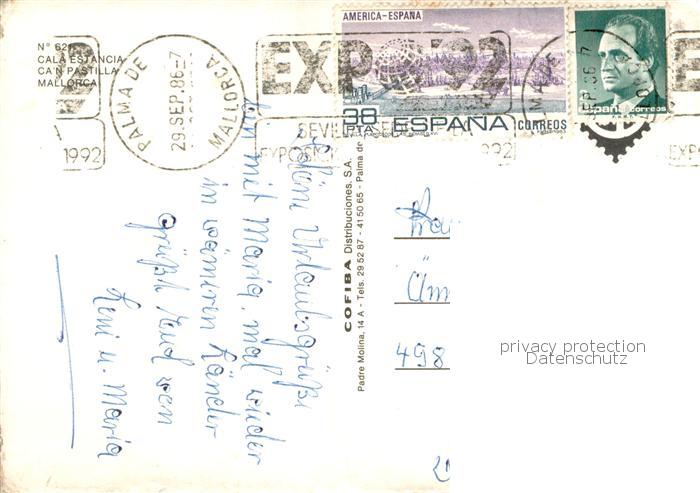 Nº 62
CALA ESTANCIA
CA'N PASTILLA
MALLORCA
1992
PALMA DE MALLORCA
29. SEP. 86-7
EXPO '92
SEVILLA
1992
AMERICA-ESPAÑA
38
PTA
ESPAÑA
CORREOS
España correos
COFIBA Distribuciones, S.A.
Padre Molina, 14 A - Tels. 29 52 87 - 41 50 65 - Palma de
Urlaubsgrüße
bin mit Maria, mal wieder
in wärmeren Länder
grüßt Euch von
Leni u. Maria
498
privacy protection
Datenschutz